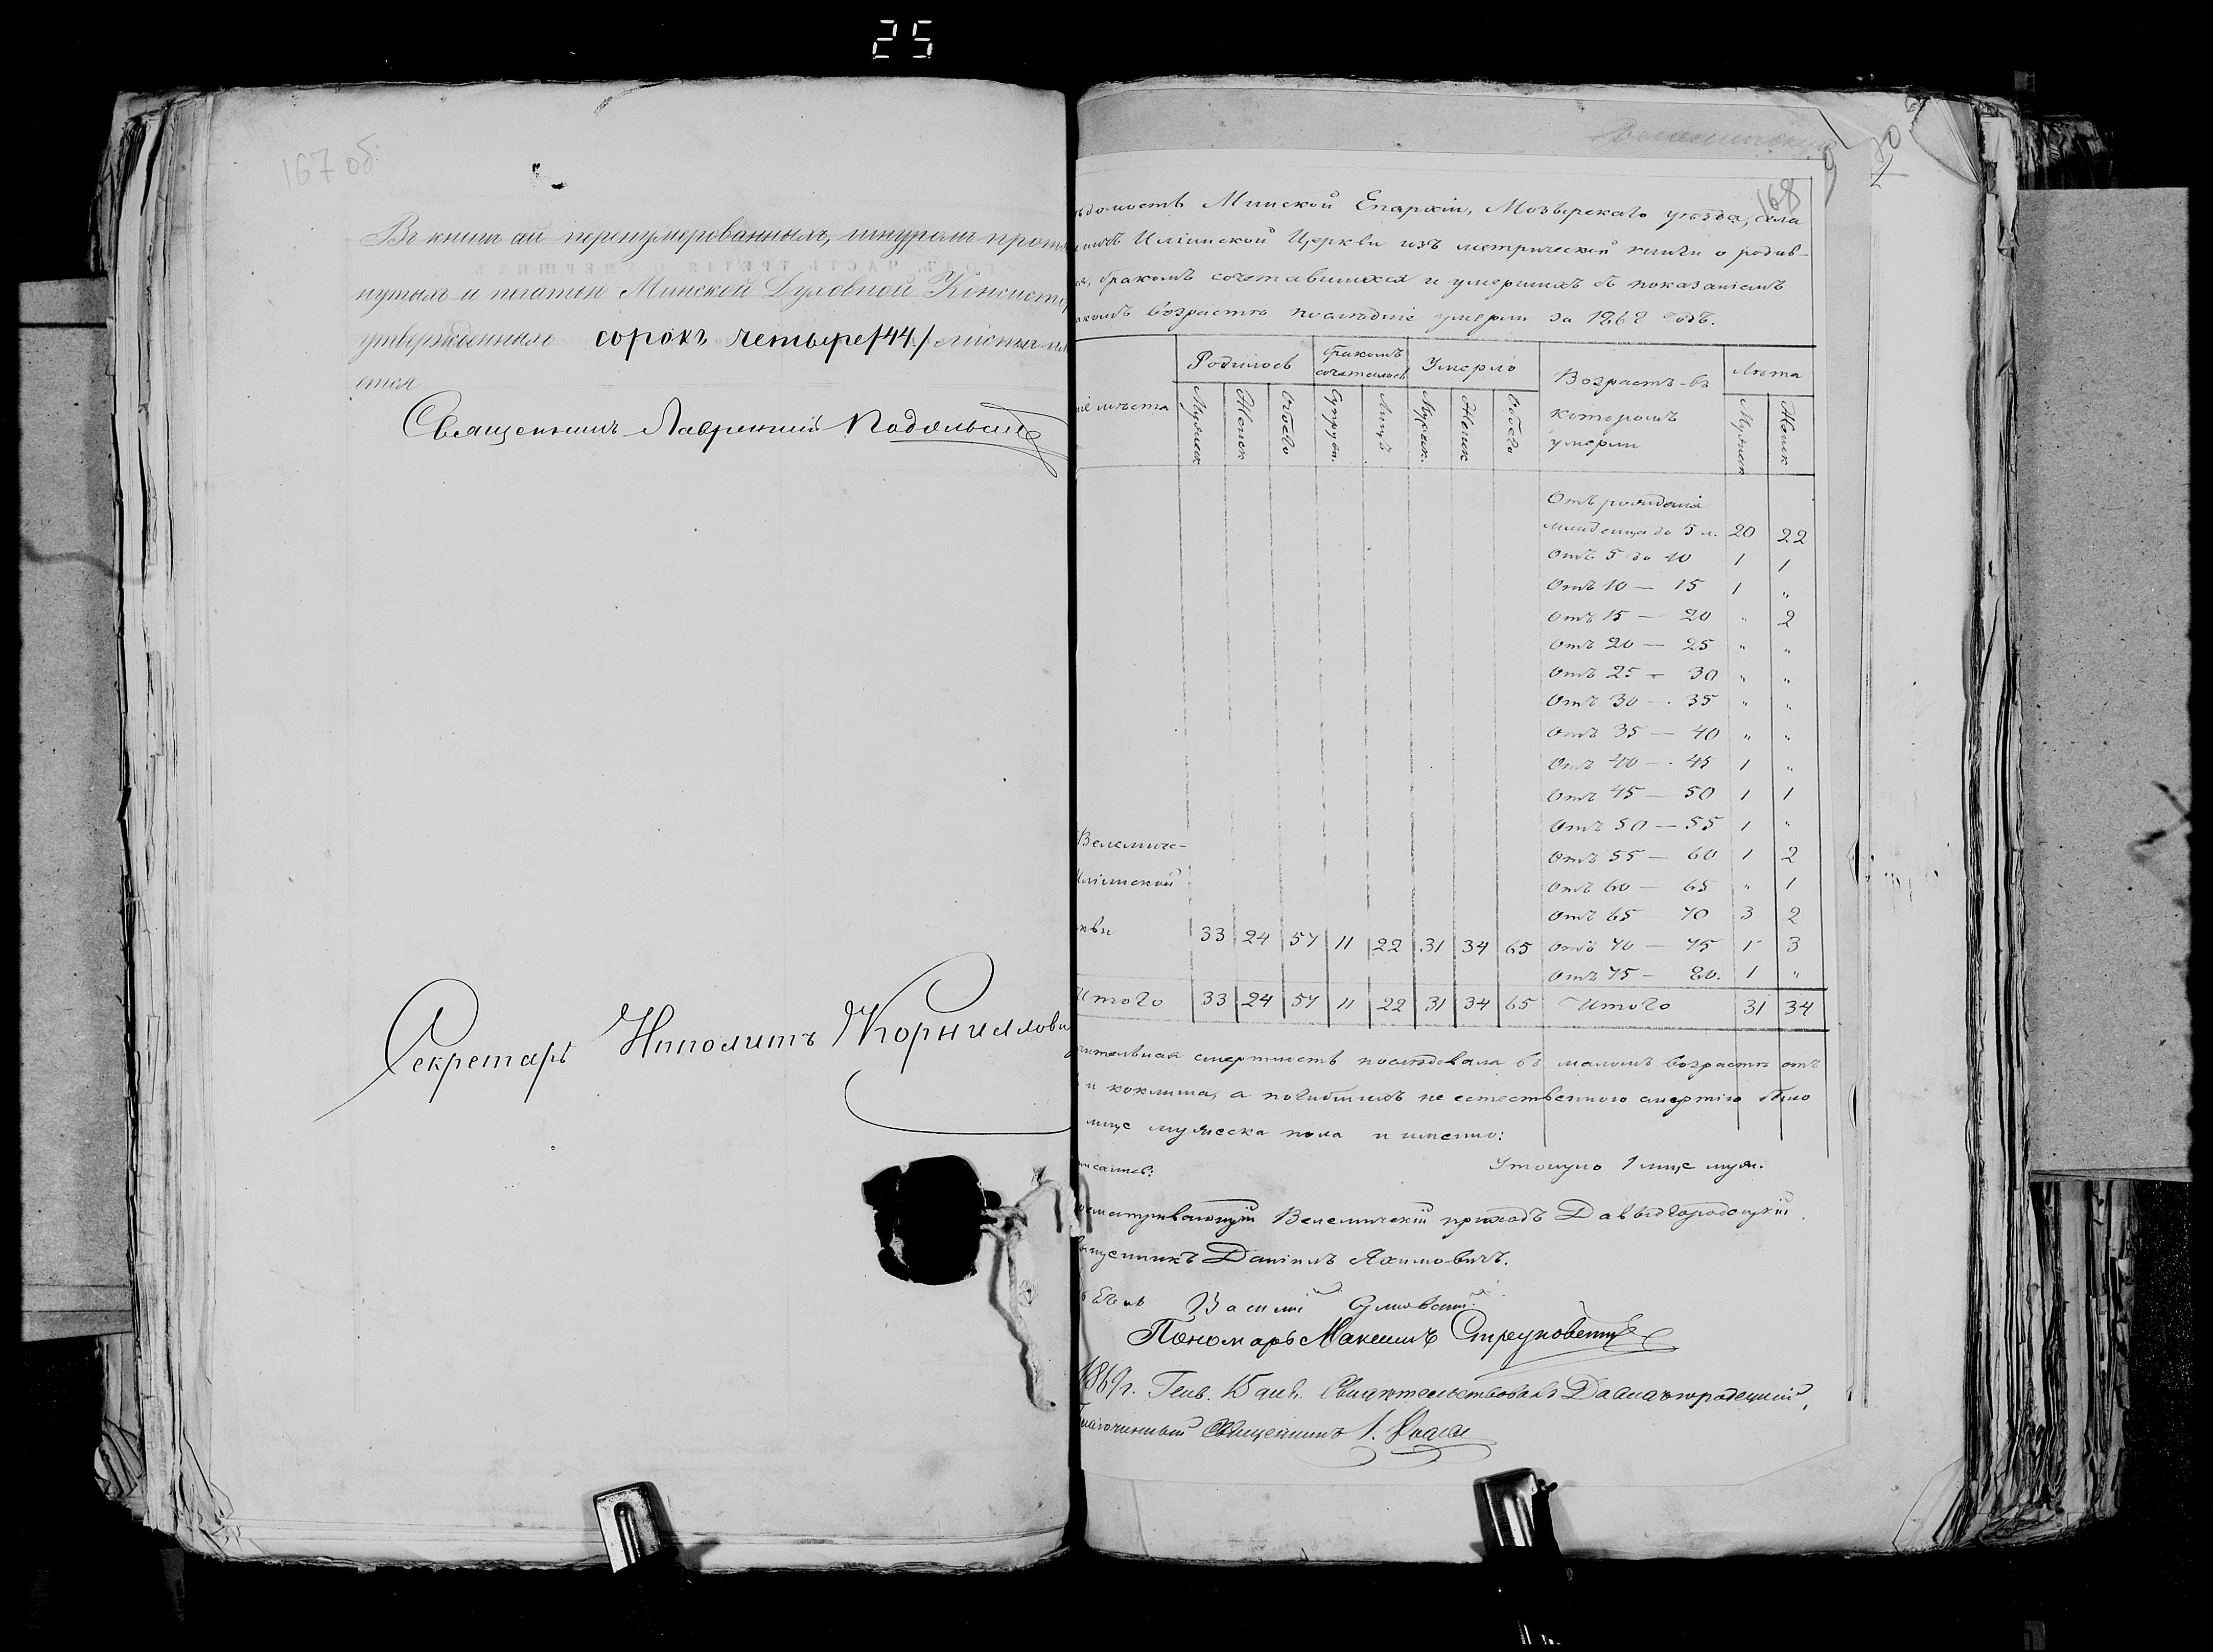 25
167 об.
Въ книгѣ сей перенумерованныхъ, шнуромъ протя
нутыхъ и печатью Минской Духовной Консисто
утвержденныхъ сорокъ четыре /44/ листы
ется
Священникъ Лаврентій Подольскій
Секретарь Ипполитъ Корниллови
168
домость Минской Епархіи, Мозырскаго уѣзда, села
Иліинской Церкви изъ метрической книги о родив-
бракомъ сочетавшихся и умершихъ съ показаніемъ
акомъ возрастѣ послѣдніе умерли за 1868 годъ.
мѣста
Родилось
бракомъ сочеталось
Умерло
Возрастъ въ которомъ умерли
Лѣта
Мужеск Женск Обоего Супруж. Лицъ Мужеск. Женск Обоего Мужеск Женск
Отъ рожденія
младенца до 5 л. 20 22
Отъ 5 до 10 1 1
Отъ 10 — 15 1 "
Отъ 15 — 20 " 2
Отъ 20 — 25 " "
Отъ 25 — 30 " "
Отъ 30 — 35 " "
Отъ 35 — 40 " "
Отъ 40 — 45 1 "
Отъ 45 — 50 1 1
Отъ 50 — 55 1 "
Велемиче-
Отъ 55 — 60 1 2
Иліинской
Отъ 60 — 65 " 1
Отъ 65 70 3 2
кви 33 24 57 11 22 31 34 65 Отъ 70 — 75 1 3
Отъ 75 — 80. 1 "
Итого 33 24 57 11 22 31 34 65 Итого 31 34
чительная смертность послѣдовала въ маломъ возрастѣ отъ
и коклюша, а погибшихъ не естественною смертію было
лице мужеска пола и именно:
Утонуло 1 лице муж.
сматривающій Велемическій приходъ Давидгородоцкій
Даніилъ Яхимовичъ.
Василій
Пономарь Максимъ Струковскій
1869 г. Генв. 15 дня. Свидѣтельствовалъ Давидгородецкій,
лагочинный Священникъ